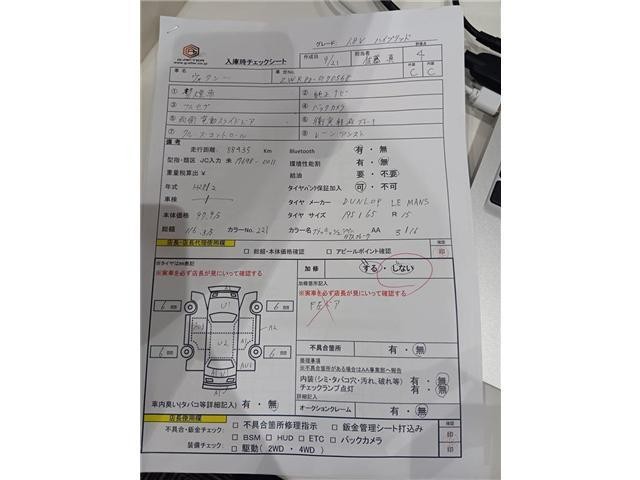 グレード 1.8V ハイブリッド
入庫時チェックシート
作成日 9/21 担当者 評価点 4
車名 ヴォクシー 車台No. ZWR80-0190568 C C
① 禁煙車 ② 純正ナビ
③ フルセグ ④ バックカメラ
⑤ 両側電動スライドドア ⑥ 衝突軽減ブレーキ
⑦ クルーズコントロール ⑧ レーンアシスト
備考
走行距離 88935 Km Bluetooth 有・無
型指・類区 JC入力 未 17698-0011 環境性能割 有・無
重量税算出 ¥ 給油 要・不要
年式 タイヤパンク保証加入 可・不可
車検 タイヤ メーカー DUNLOP LE MANS
本体価格 97.9万 タイヤ サイズ 195/65 R15
総額 カラーNo. 221 カラー名 AA 3/16
店長・店長代理使用欄 確認
□ 総額・本体価格確認 □ アピールポイント確認 印
※タイヤは㎜表記
※実車を必ず店長が見にいって確認する
加修 する・しない
加修箇所記入
※実車を必ず店長が見にいって確認する
F左ドア
6㎜ U1 6㎜
U2 A2
6㎜ 6㎜
不具合箇所 有・無
修理事項
※不具合箇所がある場合はAA事業部へ報告
内装(シミ・タバコ穴・汚れ、破れ等) 有・無
チェックランプ点灯 有・無
詳細記入
車内臭い(タバコ等詳細記入) 有・無 オークションクレーム 有・無
店長使用欄 確認
不具合・鈑金チェック: □ 不具合箇所修理指示 □ 鈑金管理シート打込み 印
装備チェック: □ BSM □ HUD □ ETC □ バックカメラ 印
□ 駆動(2WD・4WD)